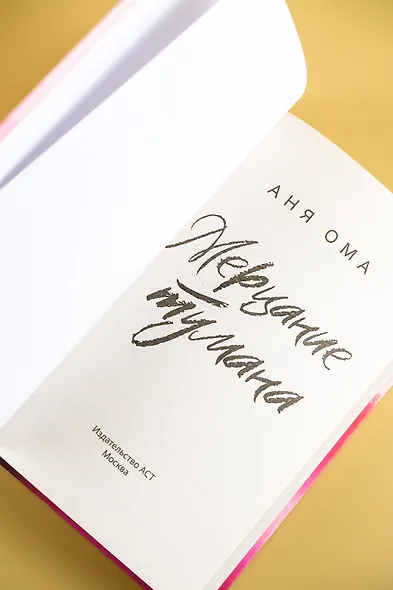 АНЯ ОМА
Мерцание
тумана
Издательство АСТ
Москва